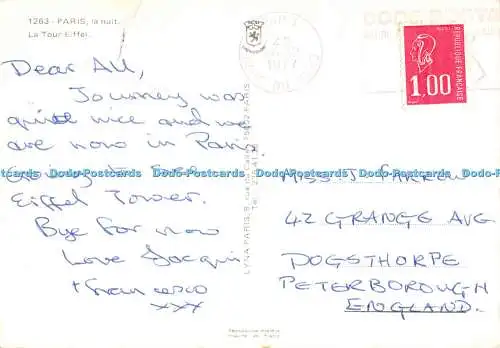 1263 - PARIS, la nuit.
La Tour Eiffel.
Dear All,
Journey was
quite nice and we
are now in Paris
going to see
Eiffel Tower.
Bye for now
Love Jacqui
+ Francesco
xxx
LYNA-PARIS, 8, rue du
75002 PARIS
Tel.
1977
REPUBLIQUE FRANÇAISE
1,00
MISS J. FARROW
42 GRANGE AVE
DOGSTHORPE
PETERBOROUGH
ENGLAND.
Dodo-Postcards Dodo-Postcards Dodo-Postcards Dodo-Postcards Dodo-Postcards Dodo-Postcards